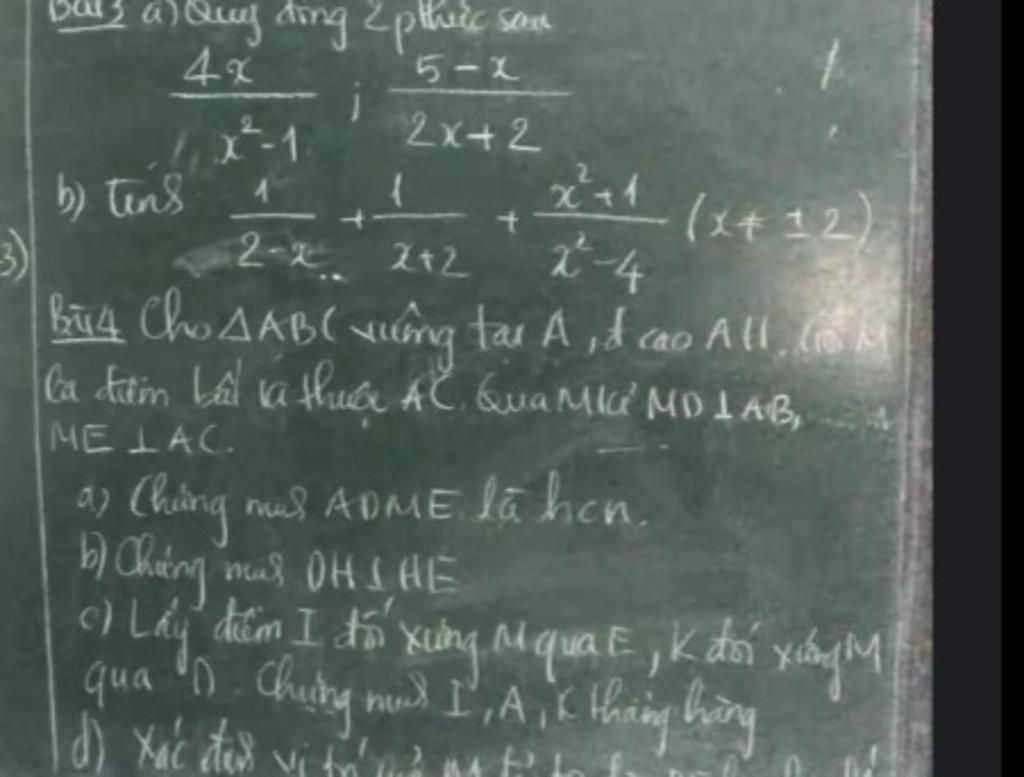 Bài 3 a) Quy đồng 2 pthức sau
4x / x²-1 ; 5-x / 2x+2
b) Tính 1 / 2-x + 1 / x+2 + x²+1 / x²-4 (x ≠ ±2)
3)
Bài 4 Cho ΔABC vuông tại A, đ cao AH. Gọi M
là điểm bất kì thuộc AC. Qua M kẻ MD⊥AB,
ME⊥AC.
a) Chứng minh ADME là hcn.
b) Chứng minh DH⊥HE
c) Lấy điểm I đối xứng M qua E, K đối xứng M
qua D. Chứng minh I, A, K thẳng hàng
d) Xác định vị trí của M